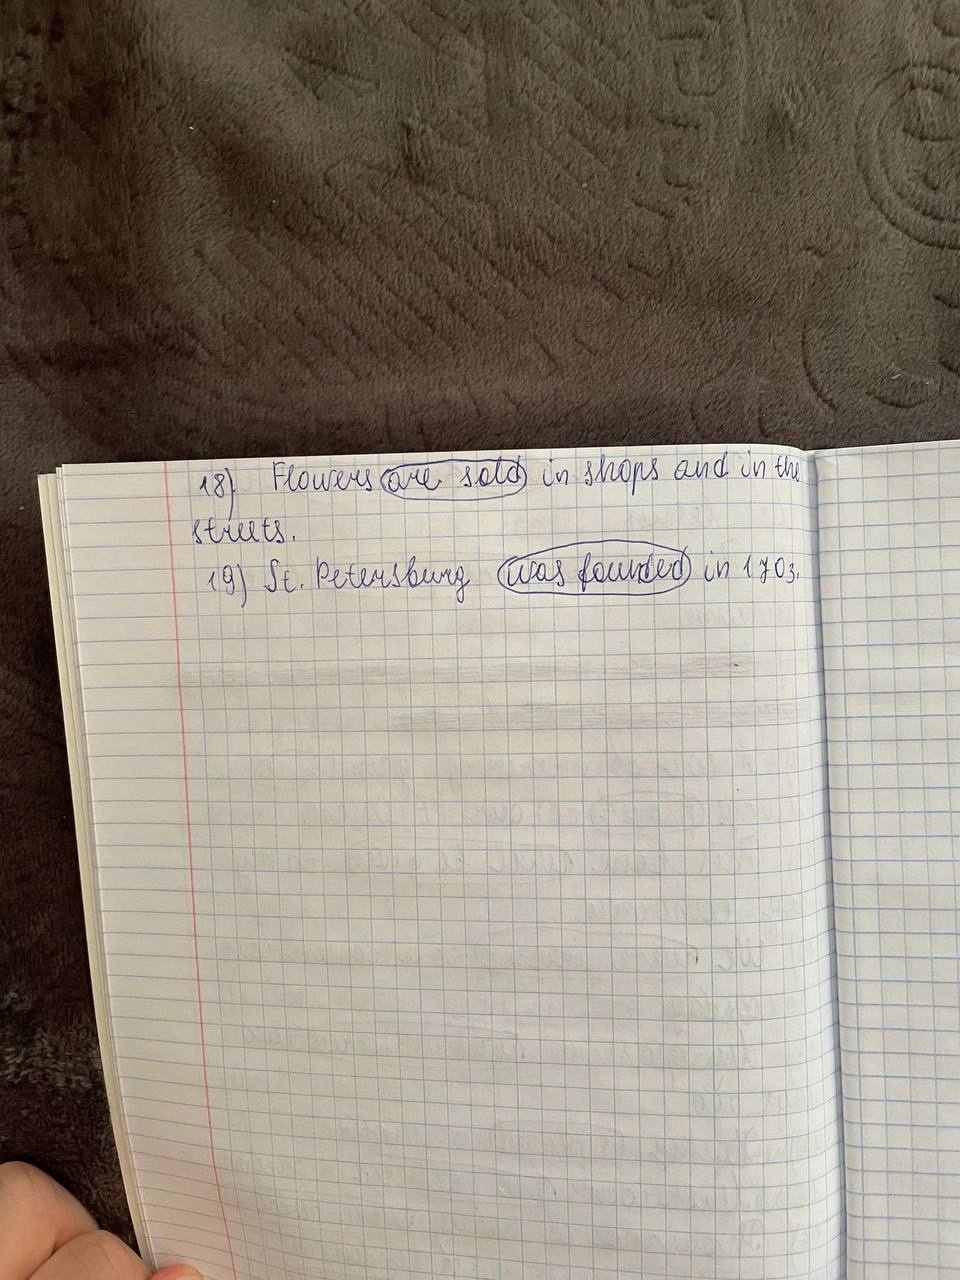 18) Flowers are sold in shops and in the
streets.
19) St. Petersburg was founded in 1703.